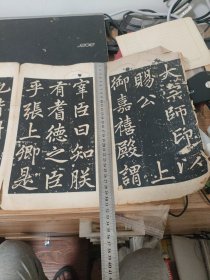 大宗師印以
賜公 上
御嘉禧殿謂
宰臣曰知朕
有耆德之臣
乎張上卿是
也
acer